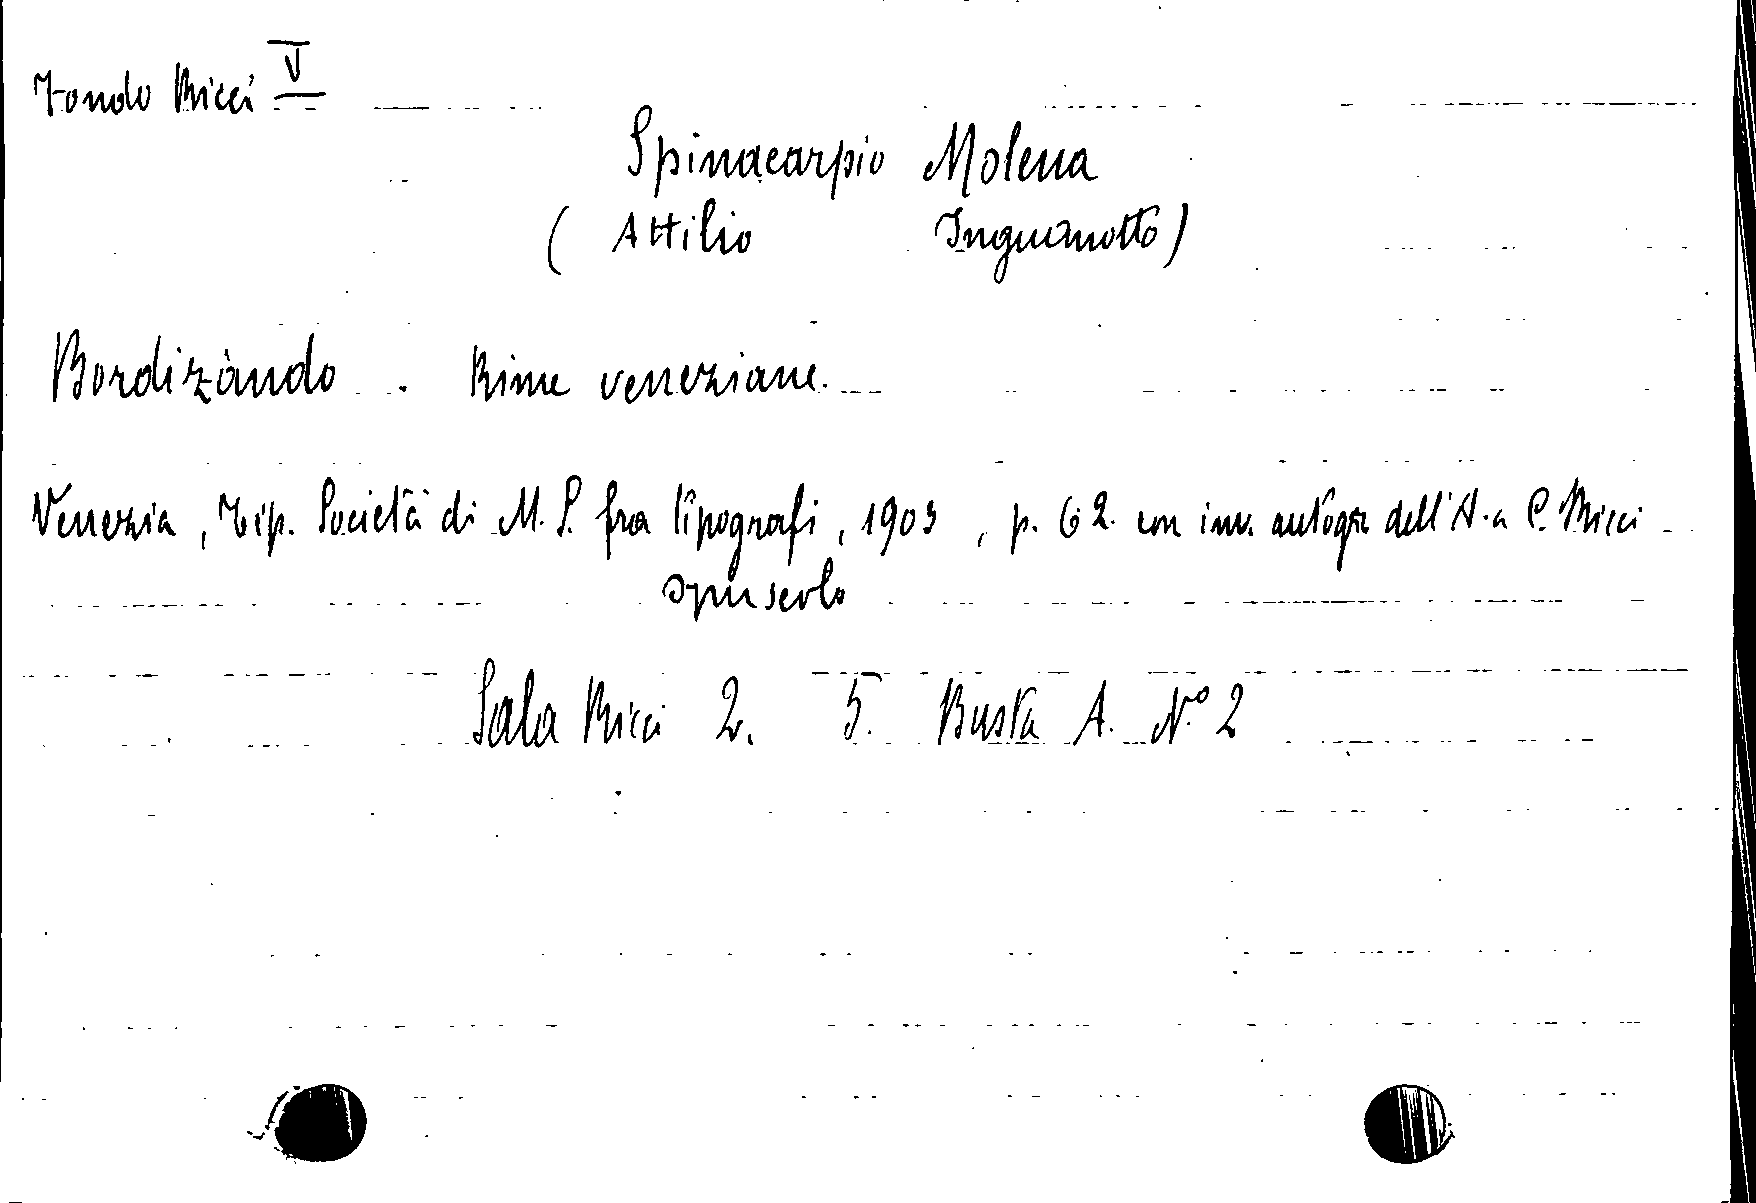 Fondo Ricci V
Spinacarpio Molena
( Attilio Inguanotto)
Bordizàndo . Rime veneziane.
Venezia, Tip. Società di M. S. fra tipografi, 1903, p. 62. con inv. autogr. dell'A. a C. Ricci
opuscolo
Sala Ricci 2. 5. Busta A. N.º 2